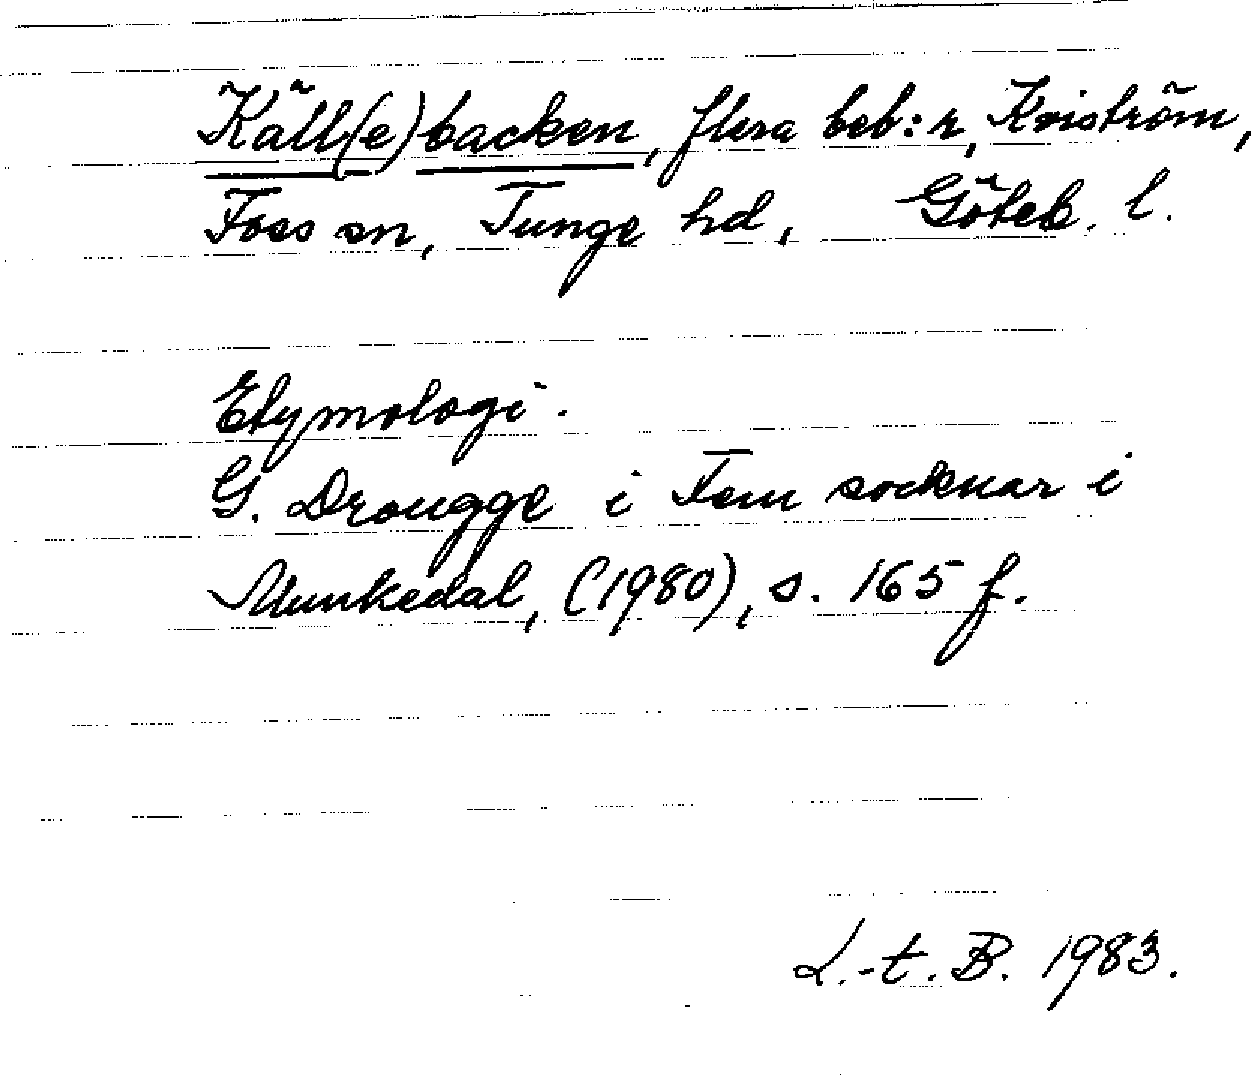 Käll(e)backen, flera beb:r, Kviström,
Foss sn, Tunge hd, Göteb. l.
Etymologi.
G. Drougge i Fem socknar i
Munkedal, (1980), s. 165 f.
L.-t. B. 1983.